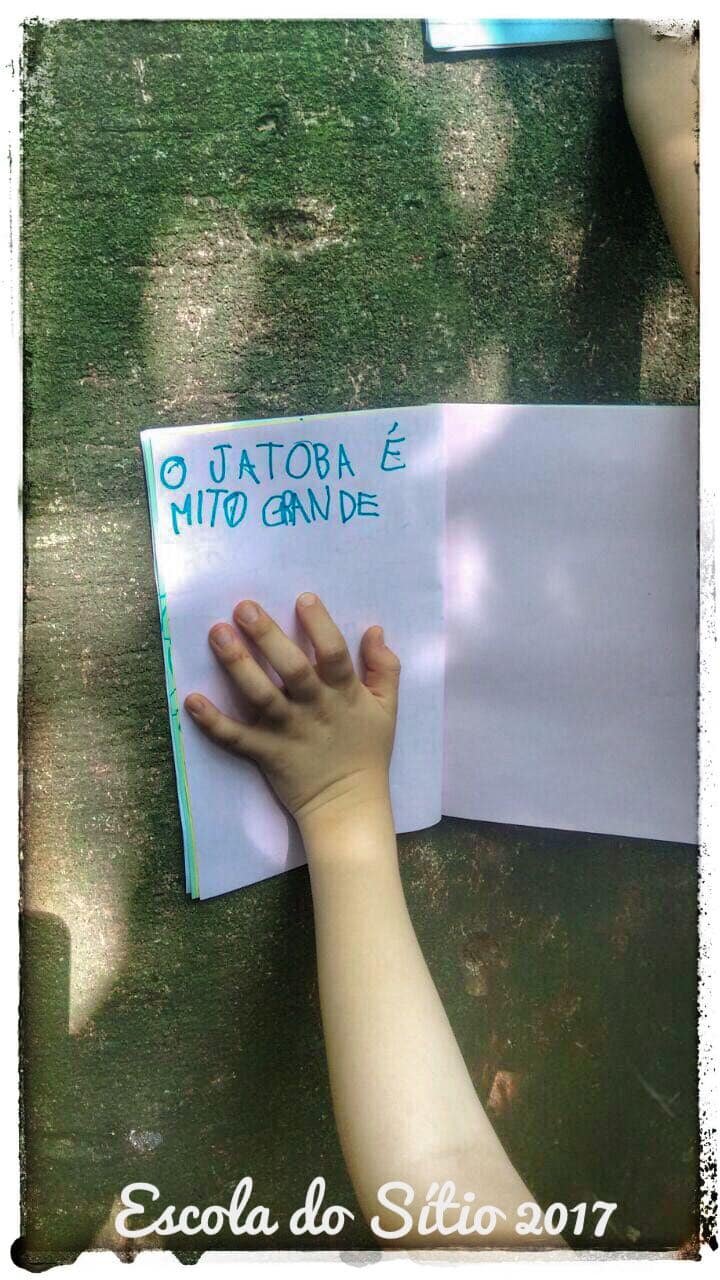 O JATOBA É
MITO GRANDE
Escola do Sítio 2017